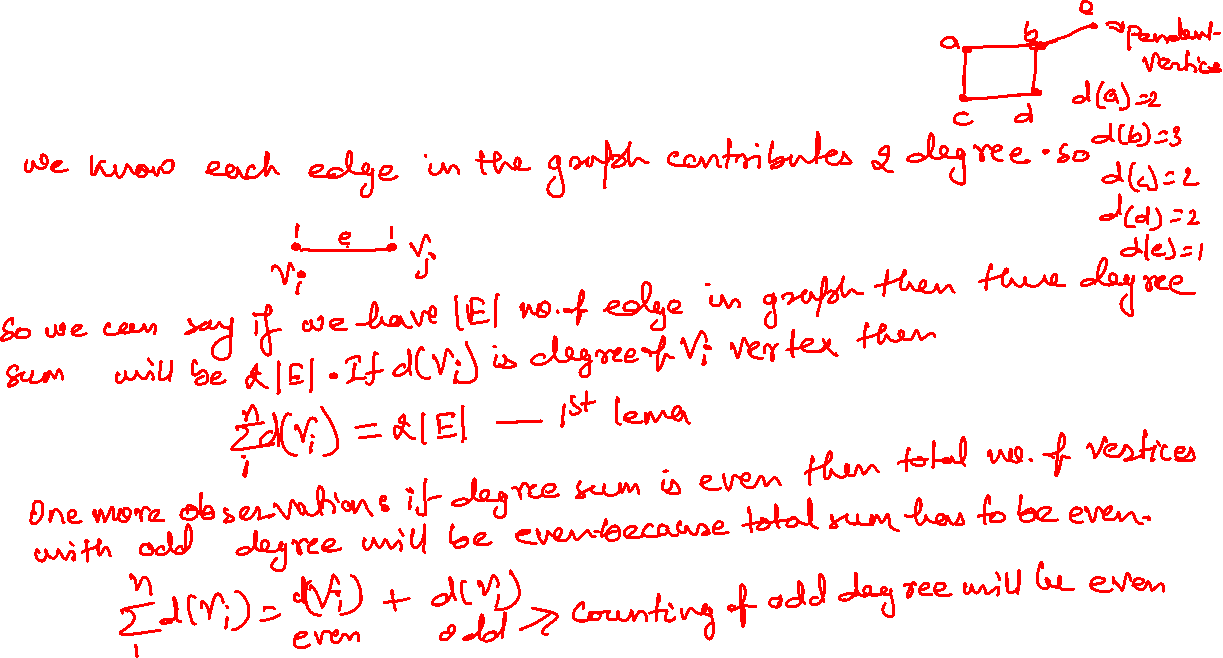 e
a b → Pendent-
Vertice
c d d(a)=2
d(b)=3
we know each edge in the graph contributes 2 degree. so
d(c)=2
d(d)=2
1 e 1
Vi Vj
d(e)=1
So we can say if we have |E| no. of edge in graph then there degree
sum will be 2|E|. If d(Vi) is degree of Vi vertex then
n
∑ d(Vi) = 2|E| — 1st lema
i
One more observations if degree sum is even then total no. of vertices
with odd degree will be even because total sum has to be even.
n
∑ d(Vi) = d(Vi) + d(Vi) => counting of odd degree will be even
1 even odd